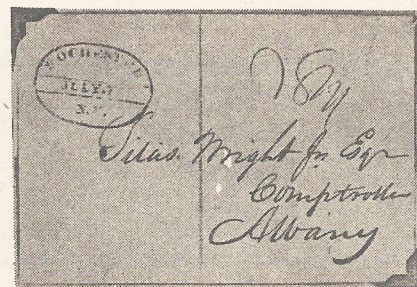 ROCHESTER
JULY
N.Y.
Silas Wright Jn Esqr
Comptroller
Albany